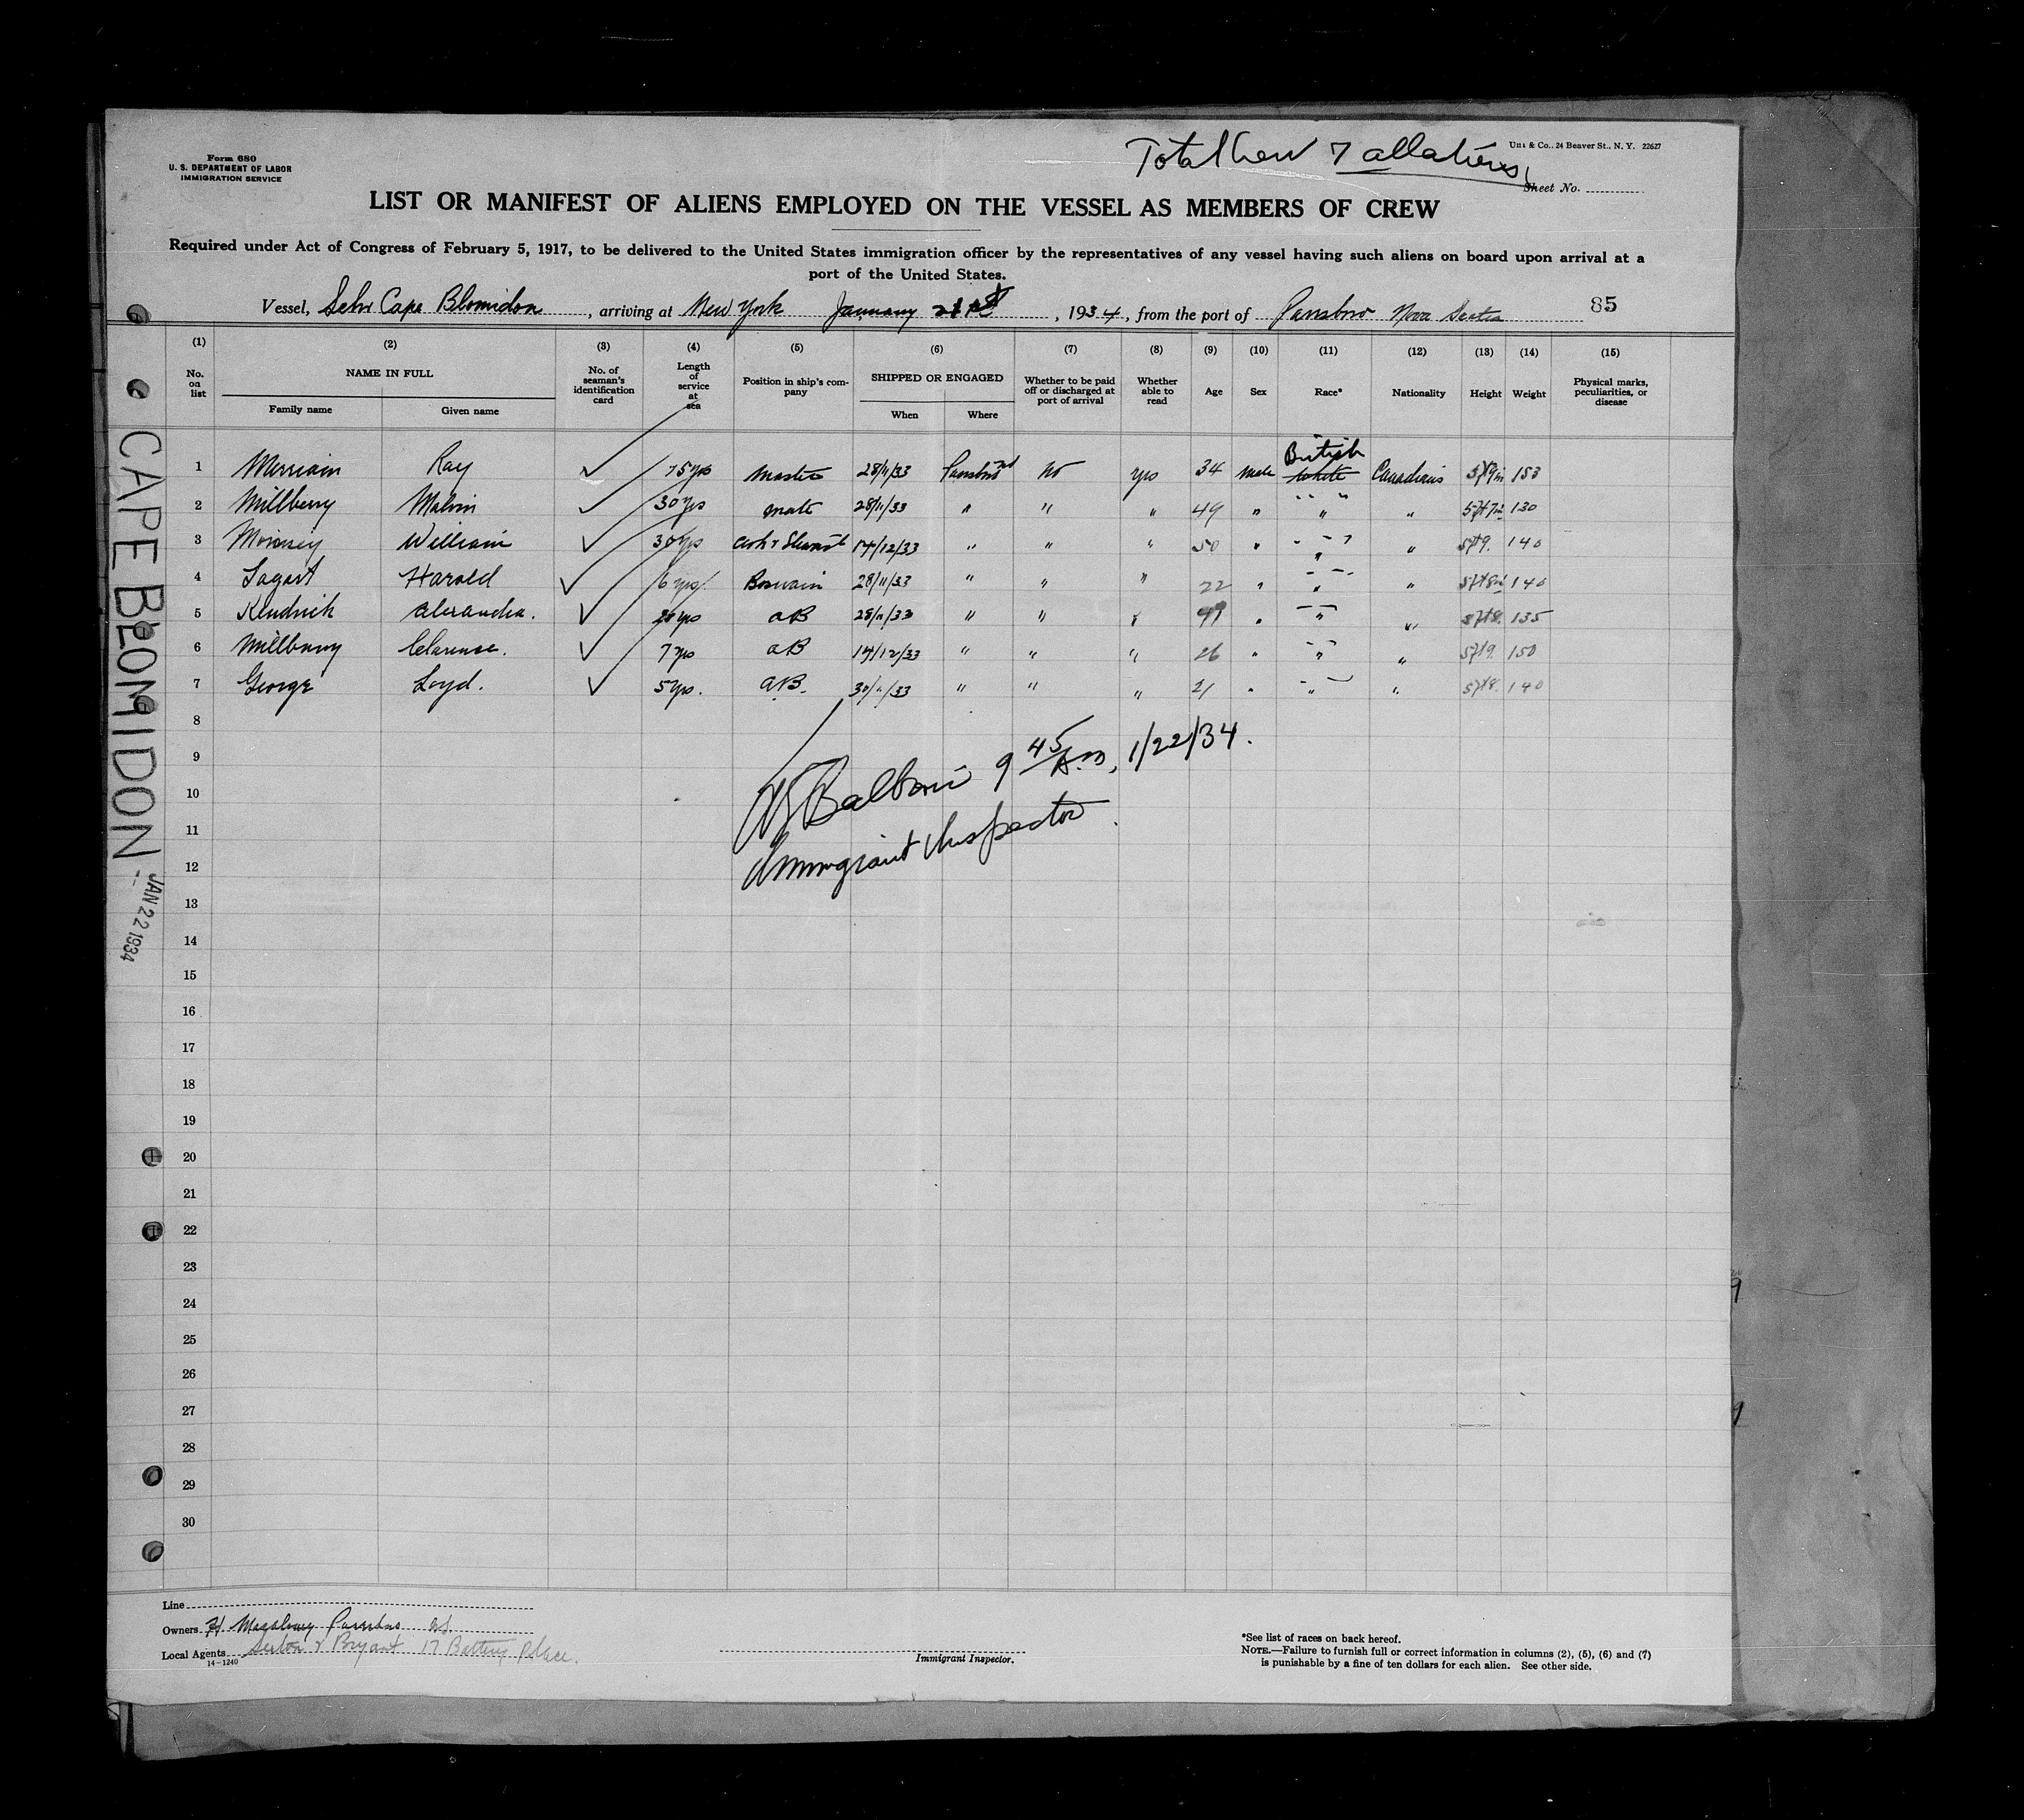 Total Crew 7 all aliens
Form 680
U. S. DEPARTMENT OF LABOR
IMMIGRATION SERVICE
& Co., 24 Beaver St., N. Y. 22627
Sheet No.
LIST OR MANIFEST OF ALIENS EMPLOYED ON THE VESSEL AS MEMBERS OF CREW
Required under Act of Congress of February 5, 1917, to be delivered to the United States immigration officer by the representatives of any vessel having such aliens on board upon arrival at a
port of the United States.
Vessel, Schr Cape Blomidon, arriving at New York January 21st, 1934, from the port of Parrsboro Nova Scotia 85
(1) (2) (3) (4) (5) (6) (7) (8) (9) (10) (11) (12) (13) (14) (15)
No. on list NAME IN FULL Family name Given name No. of seaman's identification card Length of service at sea Position in ship's company SHIPPED OR ENGAGED When Where Whether to be paid off or discharged at port of arrival Whether able to read Age Sex Race* Nationality Height Weight Physical marks, peculiarities, or disease
1 Merriam Ray 15 yrs Master 28/11/33 Parrsboro NS No yes 34 male British white Canadians 5ft 9in 153
2 Millberry Malvin 30 yrs mate 28/11/33 " " " 49 " " " 5ft 7in 130
3 William 30 yrs Cook & Steward 14/12/33 " " " 50 " " " 5ft 9. 140
4 Harold 6 yrs Boswain 28/11/33 " " " 22 " " " 5ft 8in 140
5 Kendrick Alexander. 20 yrs AB 28/11/33 " " " " " " 5ft 8. 135
6 Millbury Clarence. 7 yrs AB 14/12/33 " " " 26 " " " 5ft 9. 150
7 George Loyd. 5 yrs. AB. 30/11/33 " " " 21 " " " 5ft 8. 140
8
9
10
11
12
13
14
15
16
17
18
19
20
21
22
23
24
25
26
27
28
29
30
9 45 A.M, 1/22/34.
Immigrant Inspector
CAPE BLOMIDON -
JAN 22 1934
Line
Owners H Parrsboro N.S.
Local Agents & Bryant 17 Battery Place.
14-1240
Immigrant Inspector.
*See list of races on back hereof.
NOTE.—Failure to furnish full or correct information in columns (2), (5), (6) and (7)
is punishable by a fine of ten dollars for each alien. See other side.